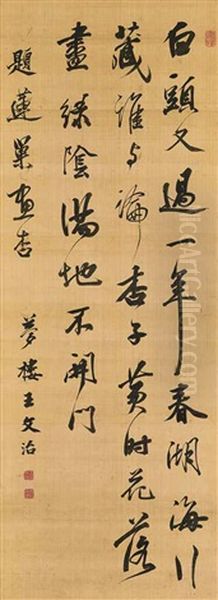 白頭又過一年春湖海行
藏誰与論杏子黃時花落
盡綠陰滿地不開門
題蓮巢畫杏
夢樓王文治